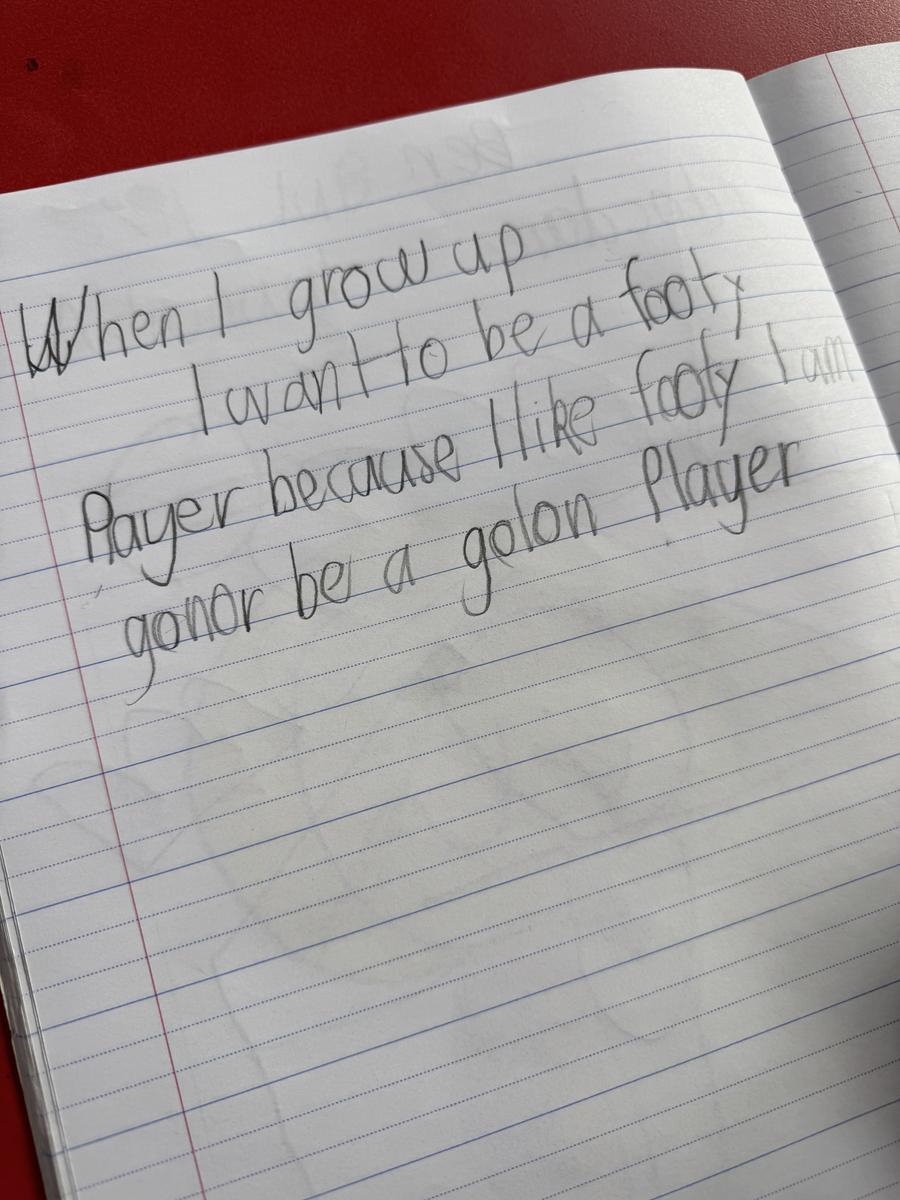 When I grow up
I want to be a footy
Player because I like footy I am
gonor be a golon Player